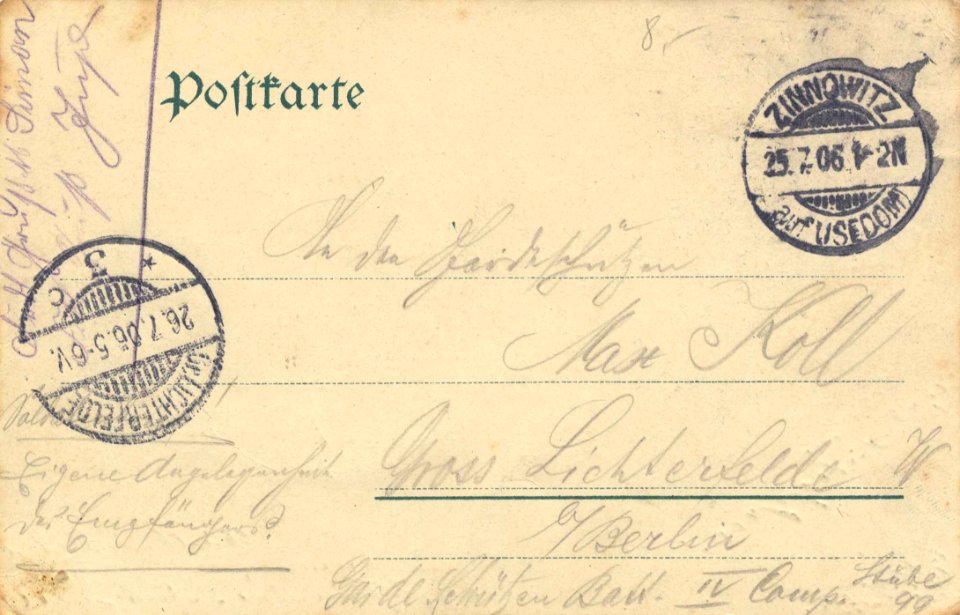 8.-
Postkarte
ZINNOWITZ
25.7.06.1-2N
(auf USEDOM)
An den Gardeschützen
Max Koll
Gross Lichterfelde W
b/Berlin
Garde Schützen Batt. IV Comp. Stube 99
3
C
26.7.06.5-6V.
LICHTERFELDE
Eigene Angelegenheit
des Empfängers